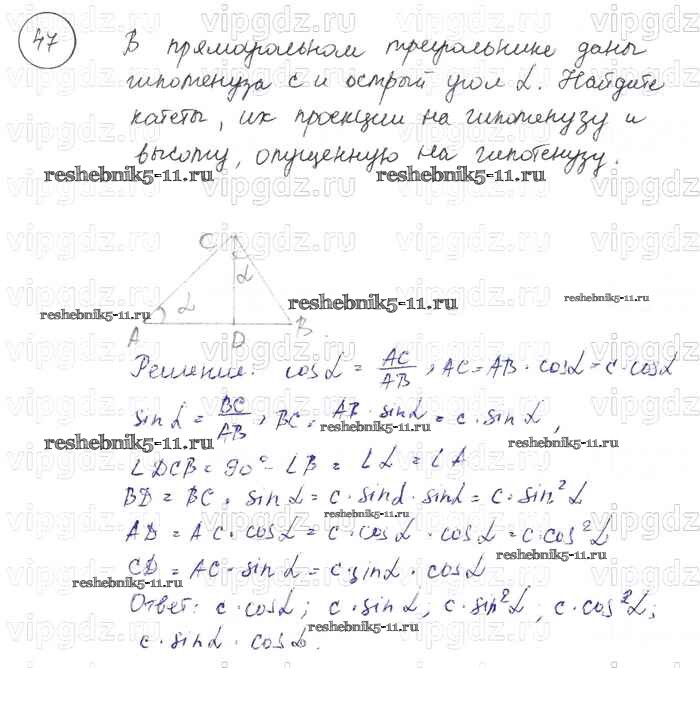 47
В прямоугольном треугольнике даны
гипотенуза c и острый угол α. Найдите
катеты, их проекции на гипотенузу и
высоту, опущенную на гипотенузу.
reshebnik5-11.ru reshebnik5-11.ru
C
α
α
reshebnik5-11.ru reshebnik5-11.ru reshebnik5-11.ru
A D B
Решение: cos α = AC/AB, AC = AB · cos α = c · cos α
sin α = BC/AB, BC = AB · sin α = c · sin α,
reshebnik5-11.ru reshebnik5-11.ru reshebnik5-11.ru
∠DCB = 90° - ∠B = ∠α = ∠A
BD = BC · sin α = c · sin α · sin α = c · sin² α
reshebnik5-11.ru
AD = AC · cos α = c · cos α · cos α = c · cos² α
reshebnik5-11.ru
CD = AC · sin α = c · sin α · cos α
reshebnik5-11.ru
Ответ: c · cos α; c · sin α; c · sin² α; c · cos² α;
reshebnik5-11.ru
c · sin α · cos α.
vipgdz.ru